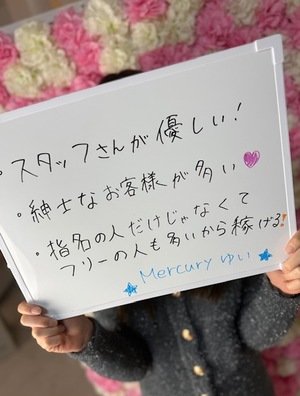 ・スタッフさんが優しい!
・紳士なお客様が多い♥
・指名の人だけじゃなくて
フリーの人も多いから稼げる!
★Mercury ゆい★